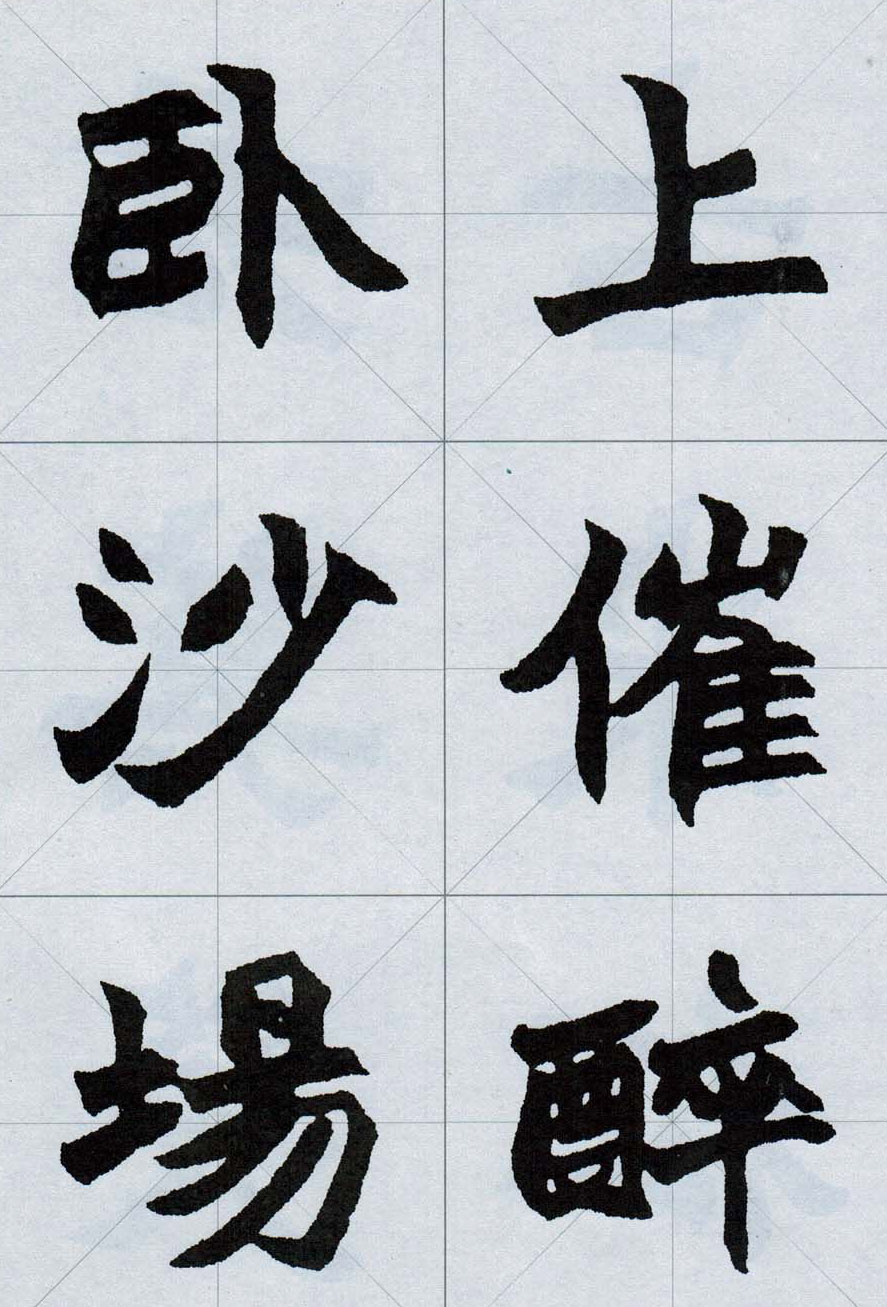 上催醉
卧沙場